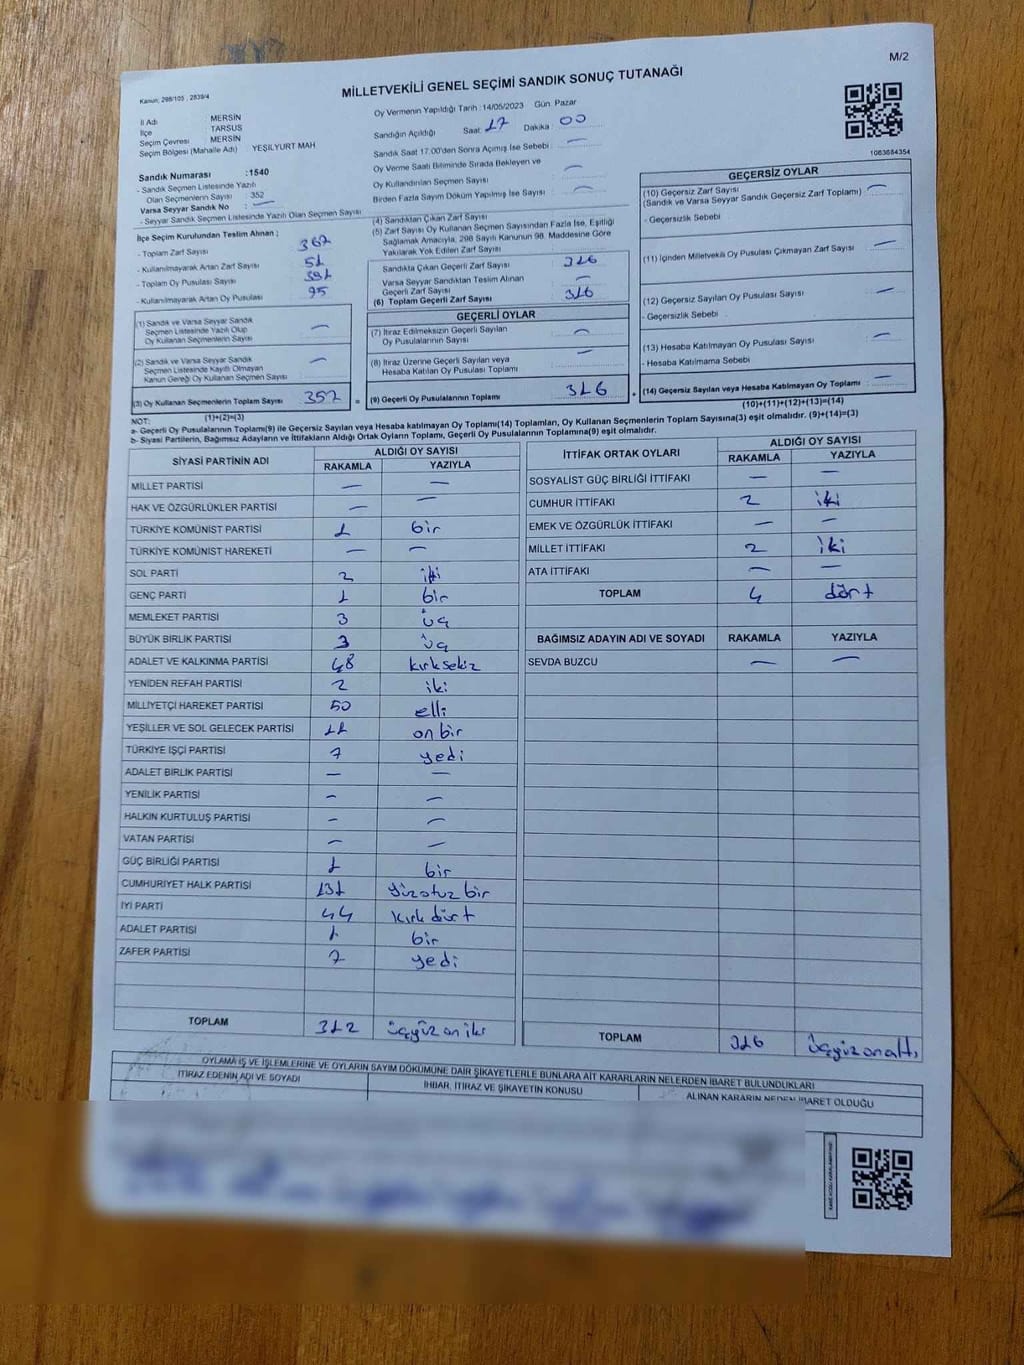 M/2
Kanun; 298/105 , 2839/4
MİLLETVEKİLİ GENEL SEÇİMİ SANDIK SONUÇ TUTANAĞI
İl Adı MERSİN
İlçe TARSUS
Seçim Çevresi MERSİN
Seçim Bölgesi (Mahalle Adı) YEŞİLYURT MAH
Sandık Numarası :1540
- Sandık Seçmen Listesinde Yazılı
Olan Seçmenlerin Sayısı : 352
Varsa Seyyar Sandık No : —
- Seyyar Sandık Seçmen Listesinde Yazılı Olan Seçmen Sayısı
İlçe Seçim Kurulundan Teslim Alınan ;
- Toplam Zarf Sayısı 367
- Kullanılmayarak Artan Zarf Sayısı 51
- Toplam Oy Pusulası Sayısı 391
- Kullanılmayarak Artan Oy Pusulası 95
(1) Sandık ve Varsa Seyyar Sandık
Seçmen Listesinde Yazılı Olup
Oy Kullanan Seçmenlerin Sayısı : —
(2) Sandık ve Varsa Seyyar Sandık
Seçmen Listesinde Kayıtlı Olmayan
Kanun Gereği Oy Kullanan Seçmen Sayısı : —
(3) Oy Kullanan Seçmenlerin Toplam Sayısı 352
(1)+(2)=(3)
Oy Vermenin Yapıldığı Tarih : 14/05/2023 Gün: Pazar
Sandığın Açıldığı Saat: 17 Dakika : 00
Sandık Saat 17:00'den Sonra Açılmış İse Sebebi : —
Oy Verme Saati Bitiminde Sırada Bekleyen ve
Oy Kullandırılan Seçmen Sayısı : —
Birden Fazla Sayım Döküm Yapılmış İse Sayısı : —
(4) Sandıktan Çıkan Zarf Sayısı
(5) Zarf Sayısı Oy Kullanan Seçmen Sayısından Fazla İse, Eşitliği
Sağlamak Amacıyla, 298 Sayılı Kanunun 98. Maddesine Göre
Yakılarak Yok Edilen Zarf Sayısı
Sandıkta Çıkan Geçerli Zarf Sayısı : 316
Varsa Seyyar Sandıktan Teslim Alınan
Geçerli Zarf Sayısı : —
(6) Toplam Geçerli Zarf Sayısı : 316
GEÇERLİ OYLAR
(7) İtiraz Edilmeksizin Geçerli Sayılan
Oy Pusulalarının Sayısı : —
(8) İtiraz Üzerine Geçerli Sayılan veya
Hesaba Katılan Oy Pusulası Toplamı : —
= (9) Geçerli Oy Pusulalarının Toplamı : 316 +
1083684354
GEÇERSİZ OYLAR
(10) Geçersiz Zarf Sayısı —
(Sandık ve Varsa Seyyar Sandık Geçersiz Zarf Toplamı)
- Geçersizlik Sebebi
(11) İçinden Milletvekili Oy Pusulası Çıkmayan Zarf Sayısı —
(12) Geçersiz Sayılan Oy Pusulası Sayısı : —
- Geçersizlik Sebebi
(13) Hesaba Katılmayan Oy Pusulası Sayısı : —
- Hesaba Katılmama Sebebi
(14) Geçersiz Sayılan veya Hesaba Katılmayan Oy Toplamı : —
(10)+(11)+(12)+(13)=(14)
NOT:
a- Geçerli Oy Pusulasının Toplamı(9) ile Geçersiz Sayılan veya Hesaba katılmayan Oy Toplamı(14) Toplamları, Oy Kullanan Seçmenlerin Toplam Sayısına(3) eşit olmalıdır. (9)+(14)=(3)
b- Siyasi Partilerin, Bağımsız Adayların ve İttifakların Aldığı Ortak Oyların Toplamı, Geçerli Oy Pusulalarının Toplamına(9) eşit olmalıdır.
SİYASİ PARTİNİN ADI ALDIĞI OY SAYISI
RAKAMLA YAZIYLA
MİLLET PARTİSİ — —
HAK VE ÖZGÜRLÜKLER PARTİSİ — —
TÜRKİYE KOMÜNİST PARTİSİ 1 bir
TÜRKİYE KOMÜNİST HAREKETİ — —
SOL PARTİ 2 iki
GENÇ PARTİ 1 bir
MEMLEKET PARTİSİ 3 üç
BÜYÜK BİRLİK PARTİSİ 3 üç
ADALET VE KALKINMA PARTİSİ 48 kırksekiz
YENİDEN REFAH PARTİSİ 2 iki
MİLLİYETÇİ HAREKET PARTİSİ 50 elli
YEŞİLLER VE SOL GELECEK PARTİSİ 11 on bir
TÜRKİYE İŞÇİ PARTİSİ 7 yedi
ADALET BİRLİK PARTİSİ — —
YENİLİK PARTİSİ — —
HALKIN KURTULUŞ PARTİSİ — —
VATAN PARTİSİ — —
GÜÇ BİRLİĞİ PARTİSİ 1 bir
CUMHURİYET HALK PARTİSİ 131 yüzotuz bir
İYİ PARTİ 44 kırk dört
ADALET PARTİSİ 1 bir
ZAFER PARTİSİ 7 yedi
TOPLAM 312 üçyüz on iki
İTTİFAK ORTAK OYLARI ALDIĞI OY SAYISI
RAKAMLA YAZIYLA
SOSYALİST GÜÇ BİRLİĞİ İTTİFAKI — —
CUMHUR İTTİFAKI 2 iki
EMEK VE ÖZGÜRLÜK İTTİFAKI — —
MİLLET İTTİFAKI 2 iki
ATA İTTİFAKI — —
TOPLAM 4 dört
BAĞIMSIZ ADAYIN ADI VE SOYADI RAKAMLA YAZIYLA
SEVDA BUZCU — —
TOPLAM 316 üçyüz onaltı
OYLAMA İŞ VE İŞLEMLERİNE VE OYLARIN SAYIM DÖKÜMÜNE DAİR ŞİKAYETLERLE BUNLARA AİT KARARLARIN NELERDEN İBARET BULUNDUKLARI
İTİRAZ EDENİN ADI VE SOYADI İHBAR, İTİRAZ VE ŞİKAYETİN KONUSU ALINAN KARARIN NEDEN İBARET OLDUĞU